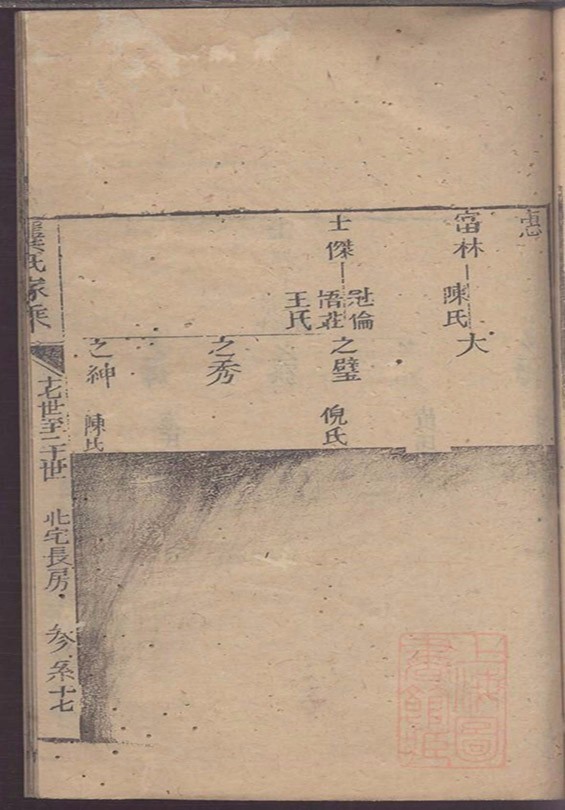 富林
陳氏
大
士傑
冠倫
悟莊
王氏
之璧
倪氏
之秀
之紳
陳氏
氏家乘
十七世至二十世
北宅長房
參系十七
上海圖書館藏